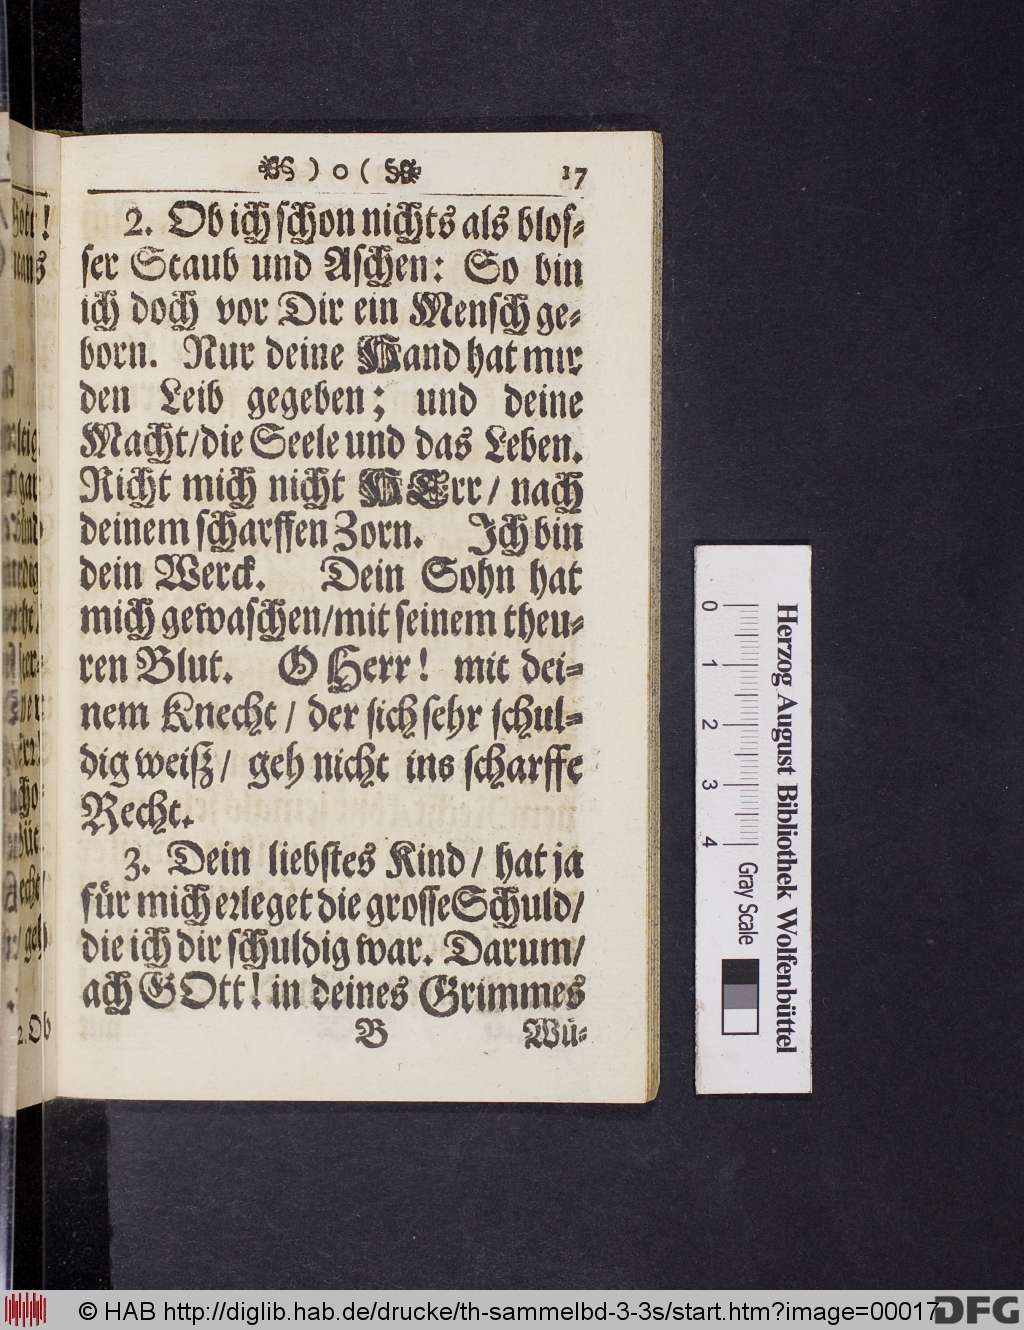 ) o ( 17
2. Ob ich schon nichts als blos-
ser Staub und Aschen: So bin
ich doch vor Dir ein Mensch ge-
born. Nur deine Hand hat mir
den Leib gegeben; und deine
Macht/die Seele und das Leben.
Richt mich nicht HErr/ nach
deinem scharffen Zorn. Ich bin
dein Werck. Dein Sohn hat
mich gewaschen/mit seinem theu-
ren Blut. O Herr! mit dei-
nem Knecht / der sich sehr schul-
dig weiß/ geh nicht ins scharffe
Recht.
3. Dein liebstes Kind/ hat ja
für mich erleget die grosse Schuld/
die ich dir schuldig war. Darum/
ach GOtt! in deines Grimmes
B Wü-
2. Ob
Herzog August Bibliothek Wolfenbüttel
0 1 2 3 4 Gray Scale
© HAB http://diglib.hab.de/drucke/th-sammelbd-3-3s/start.htm?image=00017
DFG